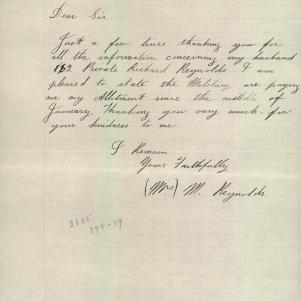 Dear Sir
Just a few lines thanking you for
all the information concerning my husband
182 Private Richard Reynolds I am
pleased to state the Military are paying
me my Allotment since the middle of
January Thanking you very much for
your kindness to me
I Remain
Yours Faithfully
(Mrs) M. Reynolds
2605
274-39